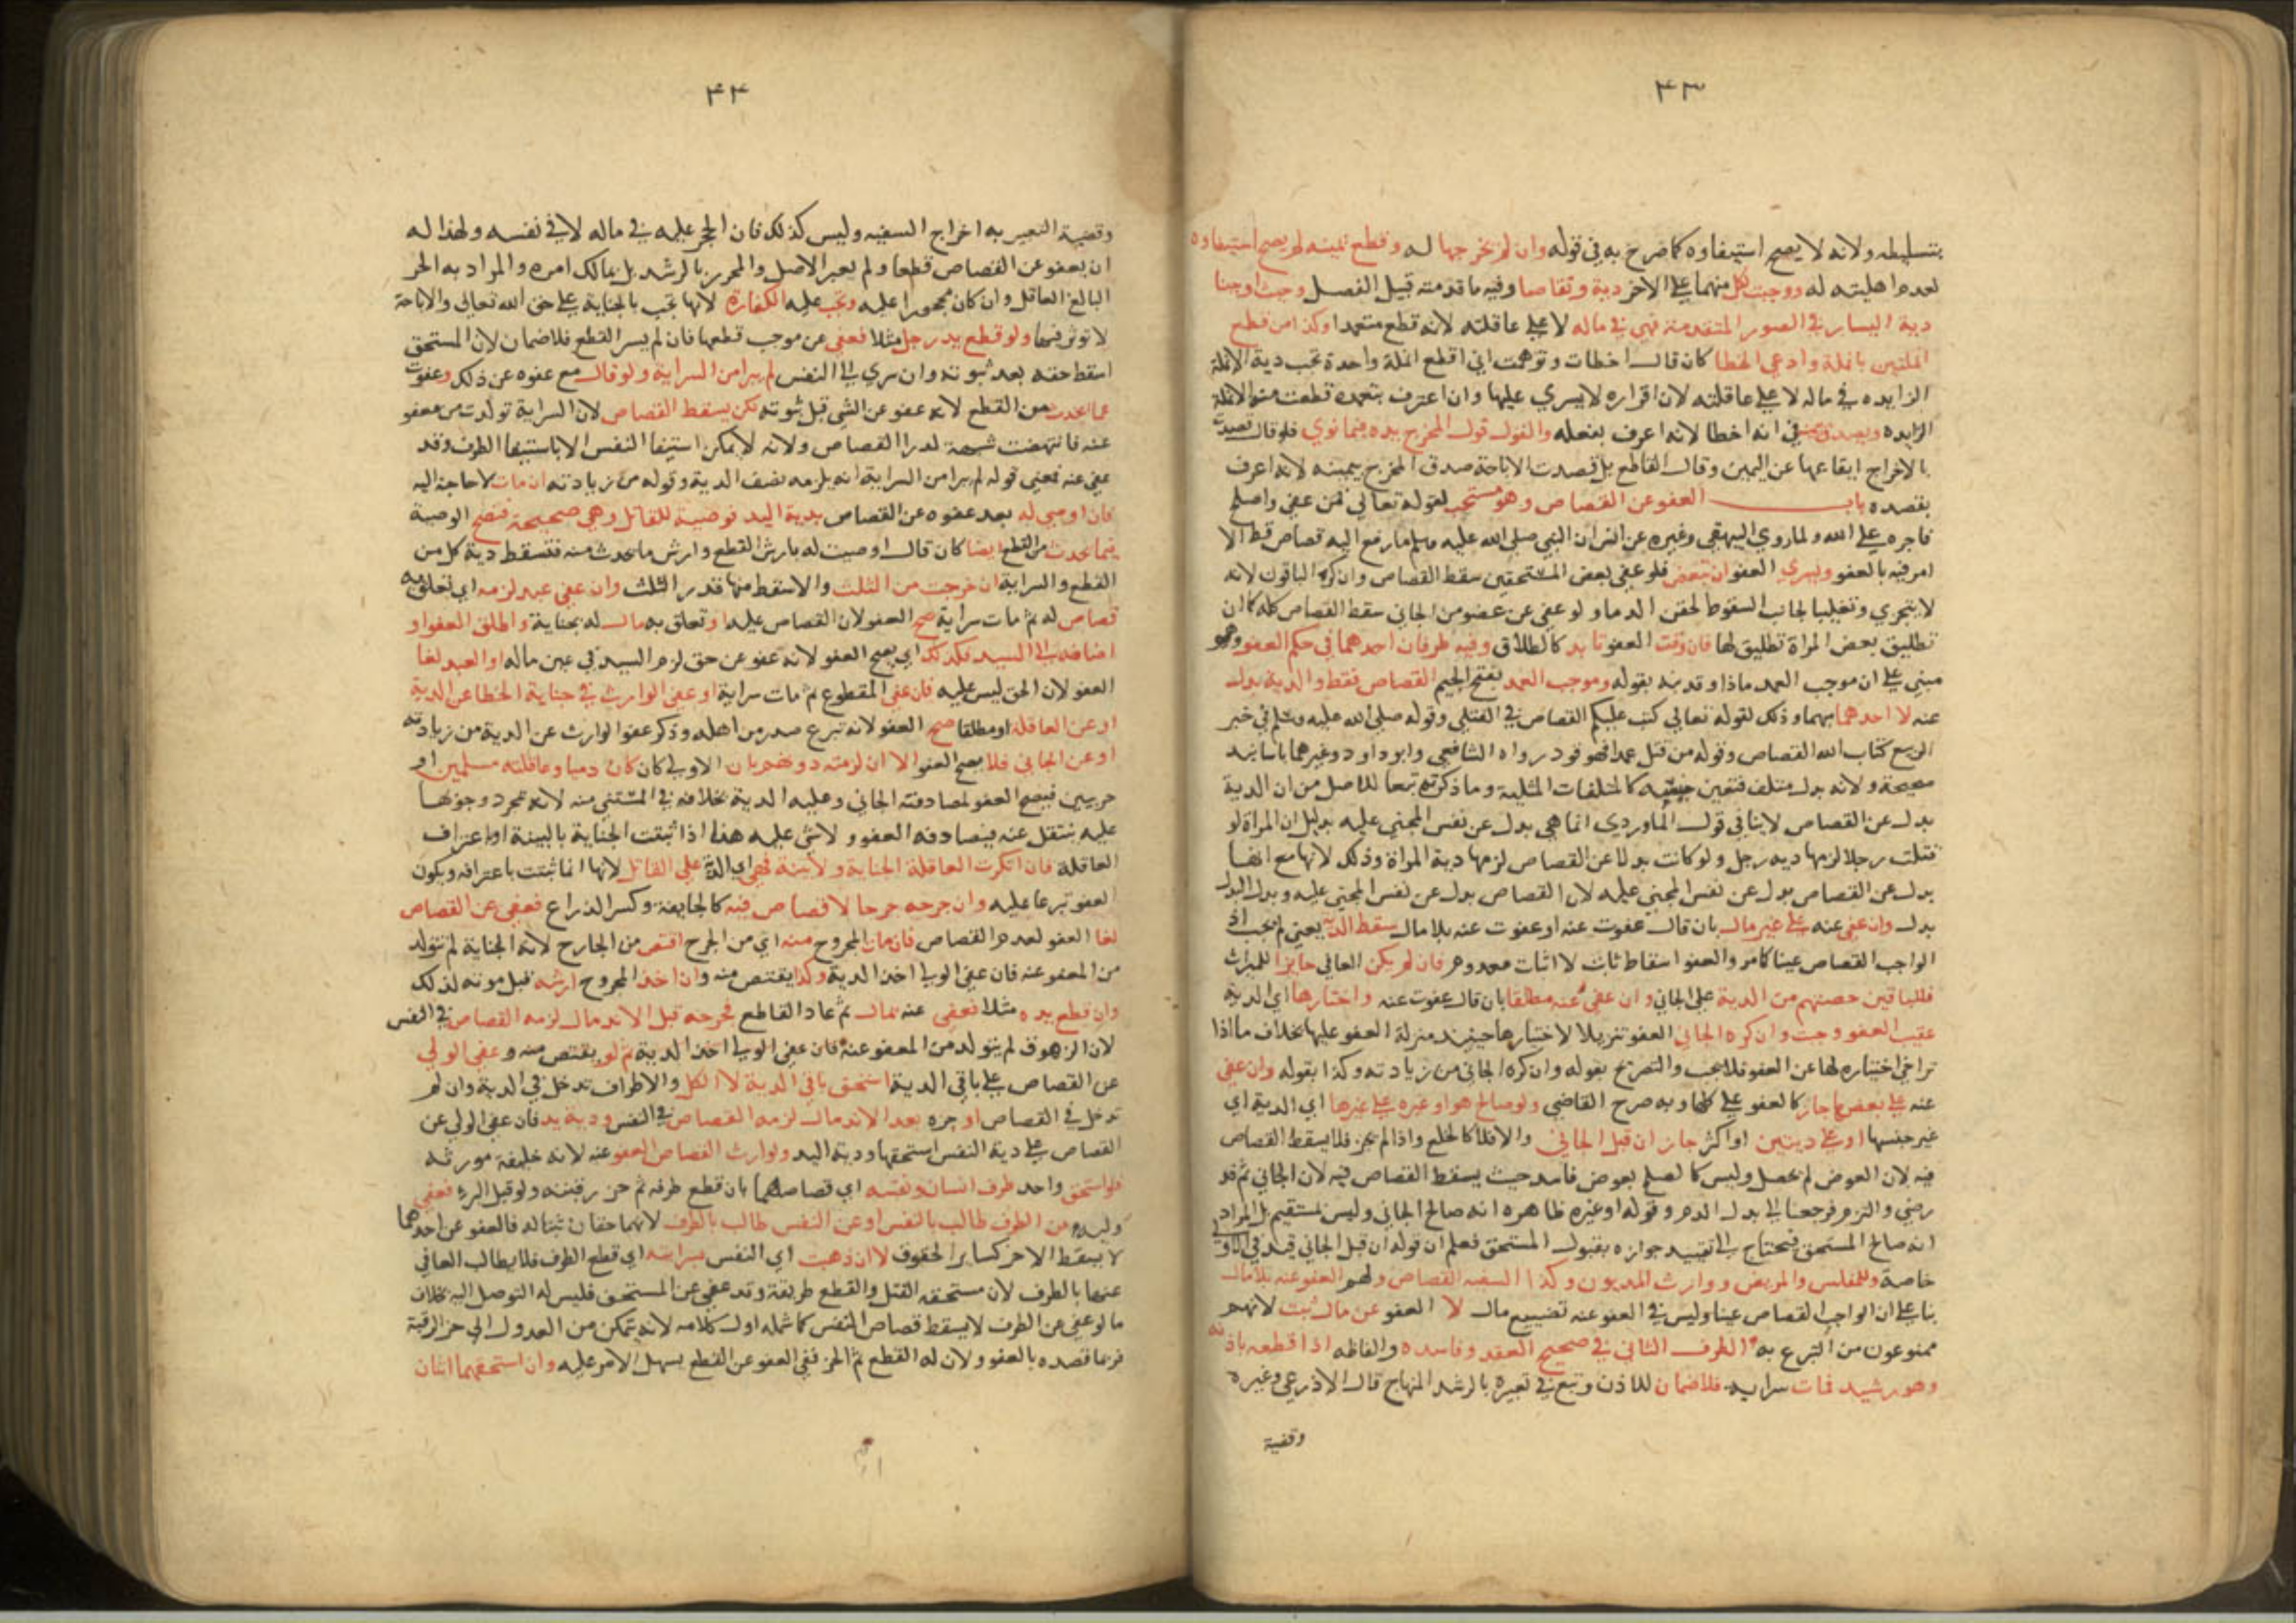 ٤٣
بتسليطه ولانه لا يصح استيفاوه كما صرح به في قوله وان لم يخرجها له وقطع يمينه لم يصح استيفاوه
لعدم اهليته له ووجبت لكل منهما على الاخر دية وتقاصا وفيه ما قدمته قبيل الفصل وحيث اوجبنا
دية اليسار في الصور المتقدمة فهي في ماله لا على عاقلته لانه قطع متعمدا وكذا من قطع
انملتين بانملة وادعي الخطا كان قال اخطات وتوهمت اني اقطع انملة واحدة تجب دية الانملة
الزايده في ماله لا على عاقلته لان اقراره لا يسري عليها وان اعترف بتعمده قطعت منه الانملة
الزايده ويصدق في انه اخطا لانه اعرف بفعله والقول قول المخرج يده فيما نوي فلو قال قصدت
بالاخراج ايقاعها عن اليمين وقال القاطع بل قصدت الاباحة صدق المخرج بيمينه لانه اعرف
بقصده باب العفو عن القصاص وهو مستحب لقوله تعالي فمن عفي واصلح
فاجره على الله ولما روي البيهقي وغيره عن انس ان النبي صلى الله عليه وسلم ما رفع اليه قصاص قط الا
امر فيه بالعفو ويسري العفو ان تبعض فلو عفي بعض المستحقين سقط القصاص وان كره الباقون لانه
لا يتجزي وتغليبا لجانب السقوط لحقن الدما ولو عفي عن عضو من الجاني سقط القصاص كله كما ان
تطليق بعض المراة تطليق لها فان وقت العفو تابد كالطلاق وفيه طرفان احدهما في حكم العفو وهو
مبني على ان موجب العمد ماذا وقد بينه بقوله وموجب العمد بفتح الجيم القصاص فقط والدية بدل
عنه لا احدهما مبهما وذلك لقوله تعالي كتب عليكم القصاص في القتلي وقوله صلى الله عليه وسلم في خبر
الربيع كتاب الله القصاص وقوله من قتل عمدا فهو قود رواه الشافعي وابو داود وغيرهما باسانيد
صحيحة ولانه بدل متلف فتعين جنسه كالمتلفات المثلية وما ذكرته تبعا للاصل من ان الدية
بدل عن القصاص لا ينافي قول الماوردي انما هي بدل عن نفس المجني عليه بدليل ان المراة لو
قتلت رجلا لزمها دية رجل ولو كانت بدلا عن القصاص لزمها دية المراة وذلك لانها مع انها
بدل عن القصاص بدل عن نفس المجني عليه لان القصاص بدل عن نفس المجني عليه وبدل البدل
بدل وان عفي عنه على غير مال بان قال عفوت عنه او عفوت عنه بلا مال سقط الدية يعني لم تجب اذ
الواجب القصاص عينا كما مر والعفو اسقاط ثابت لا اثبات معدوم فان لم يكن العافي حايزا للميراث
فللباقين حصتهم من الدية على الجاني وان عفي عنه مطلقا بان قال عفوت عنه واختارها اي الدية
عقيب العفو وجبت وان كره الجاني العفو تنزيلا لاختيارها حينيذ منزلة العفو عليها بخلاف ما اذا
تراخي اختياره لها عن العفو فلا تجب والتصريح بقوله وان كره الجاني من زيادته وكذا بقوله وان عفي
عنه على بعضها جاز كالعفو على كلها وبه صرح القاضي ولو صالح هو او غيره على غيرها اي الدية اي
غير جنسها او على ديتين او اكثر جاز ان قبل الجاني والا فلا كالخلع واذا لم يجز فلا يسقط القصاص
فيه لان العوض لم يحصل وليس كالصلح بعوض فاسد حيث يسقط القصاص فيه لان الجاني ثم قد
رضي والتزم فرجعنا الى بدل الدم وقوله او غيره ظاهره انه صالح الجاني وليس بمستقيم بل المراد
انه صالح المستحق فيحتاج الى تقييد جوازه بقبول المستحق فعلم ان قوله ان قبل الجاني قيد في الاولي
خاصة وللمفلس والمريض ووارث المديون وكذا السفيه القصاص ولهم العفو عنه بلا مال
بنا على ان الواجب القصاص عينا وليس في العفو عنه تضييع مال لا العفو عن مال ثبت لانهم
ممنوعون من التبرع به الطرف الثاني في صحيح العقد وفاسده والفاظه اذا قطعه باذنه
وهو رشيد فمات سراية فلا ضمان للاذن وتبع في تعبيره بالرشد المنهاج قال الاذرعي وغيره
وقضية
٤٤
وقضية التعبير به اخراج السفيه وليس كذلك فان الحجر عليه في ماله لا في نفسه ولهذا له
ان يعفو عن القصاص قطعا ولم يعبر الاصل والمحرر بالرشد بل بمالك امره والمراد به الحر
البالغ العاقل وان كان محجورا عليه وتجب عليه الكفارة لانها تجب بالجناية على حق الله تعالي والاباحة
لا توثر فيها ولو قطع يد رجل مثلا فعفي عن موجب قطعها فان لم يسر القطع فلا ضمان لان المستحق
اسقط حقه بعد ثبوته وان سري الى النفس لم يبرا من السراية ولو قال مع عفوه عن ذلك وعفوت
عما يحدث من القطع لانه عفو عن الشي قبل ثبوته لكن يسقط القصاص لان السراية تولدت من معفو
عنه فانتهضت شبهة لدرا القصاص ولانه لا يمكن استيفا النفس الا باستيفا الطرف وقد
عفي عنه فمعني قوله لم يبرا من السراية انه يلزمه نصف الدية وقوله من زيادته ان مات لا حاجة اليه
فان اوصي له بعد عفوه عن القصاص بدية اليد فوصية للقاتل وهي صحيحة فتصح الوصية
فيما يحدث من القطع ايضا كان قال اوصيت له بارش القطع وارش ما يحدث منه فتسقط دية كل من
القطع والسراية ان خرجت من الثلث والا سقط منها قدر الثلث وان عفي عبد لزمه اي تعلق به
قصاص له ثم مات سراية صح العفو لان القصاص عليه او تعلق به مال له بجناية واطلق العفو او
اضافه الى السيد فكذلك اي يصح العفو لانه عفو عن حق لزم السيد في عين ماله او العبد لغا
العفو لان الحق ليس عليه فان عفي المقطوع ثم مات سراية او عفي الوارث في جناية الخطا عن الدية
او عن العاقلة او مطلقا صح العفو لانه تبرع صدر من اهله وذكر عفو الوارث عن الدية من زيادته
او عن الجاني فلا يصح العفو الا ان لزمته دونهم بان الاولي كان كان ذميا وعاقلته مسلمين او
حربيين فيصح العفو لمصادفته الجاني وعليه الدية بخلافه في المستثني منه لانه بمجرد وجوبها
عليه ينتقل عنه فيصادفه العفو ولا شي عليه هذا اذا ثبتت الجناية بالبينة او اعتراف
العاقلة فان انكرت العاقلة الجناية ولا بينة فهي اي الدية على القاتل لانها انما ثبتت باعترافه ويكون
العفو تبرعا عليه وان جرحه جرحا لا قصاص فيه كالجايفة وكسر الذراع فعفي عن القصاص
لغا العفو لعدم القصاص فان مات المجروح منه اي من الجرح اقتص من الجارح لانه الجناية لم تتولد
من المعفو عنه فان عفي الولي اخذ الدية وكذا يقتص منه وان اخذ المجروح ارشه قبل موته لذلك
وان قطع يده مثلا فعفي عنه بمال ثم عاد القاطع فجرحه قبل الاندمال لزمه القصاص في النفس
لان الزهوق لم يتولد من المعفو عنه فان عفي الولي اخذ الدية ثم لو يقتص منه وعفي الولي
عن القصاص على باقي الدية استحق باقي الدية لا الكل والاطراف تدخل في الدية وان لم
تدخل في القصاص او جرحه بعد الاندمال لزمه القصاص في النفس ودية يد فان عفي الولي عن
القصاص على دية النفس استحقها ودية اليد ولوارث القصاص العفو عنه لانه خليفة مورثه
فلو استحق واحد طرف انسان ونفسه اي قصاصهما بان قطع طرفه ثم حز رقبته ولو قبل البرء فعفي
وليه عن الطرف طالب بالنفس او عن النفس طالب بالطرف لانهما حقان ثبتا له فالعفو عن احدهما
لا يسقط الاخر كساير الحقوق لا ان ذهبت اي النفس بسراية اي قطع الطرف فلا يطالب العافي
عنها بالطرف لان مستحقه القتل والقطع طريقة وقد عفي عن المستحق فليس له التوصل اليه بخلاف
ما لو عفي عن الطرف لا يسقط قصاص النفس كما شمله اول كلامه لانه يتمكن من العدول الى حز الرقبة
فربما قصده بالعفو ولان له القطع ثم الحز ففي العفو عن القطع يسهل الامر عليه وان استحقهما اثنان